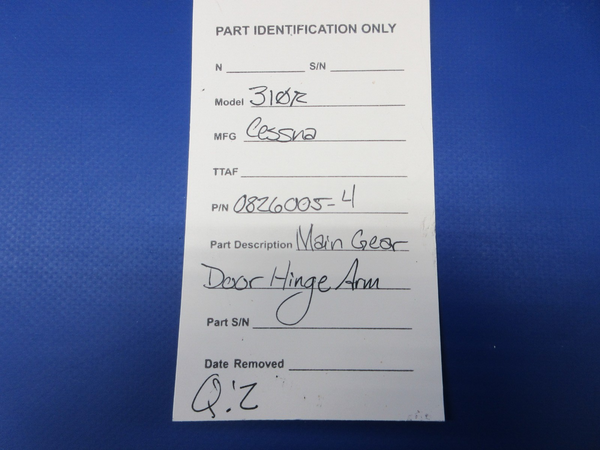 PART IDENTIFICATION ONLY
N ________ S/N ________
Model 310R
MFG Cessna
TTAF ________
P/N 0826005-4
Part Description Main Gear
Door Hinge Arm
Part S/N ________
Date Removed ________
Q:2